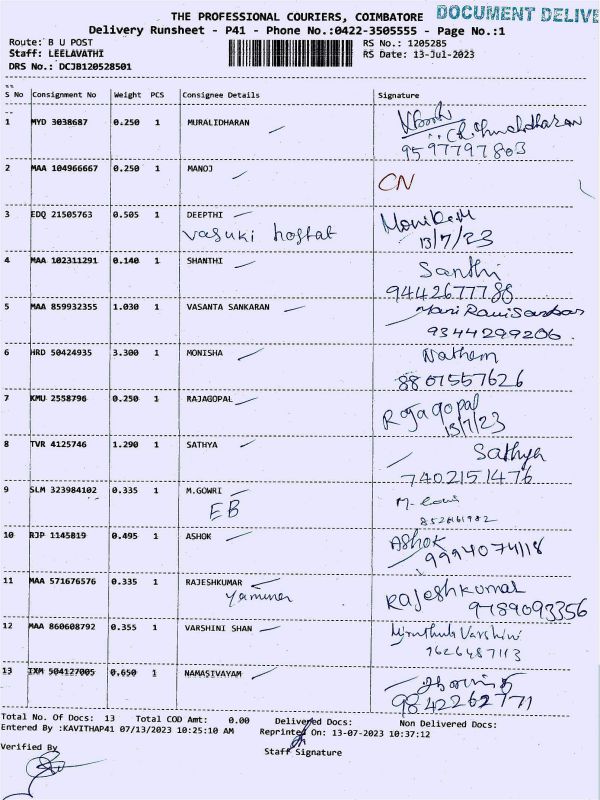 THE PROFESSIONAL COURIERS, COIMBATORE DOCUMENT DELIVE
Delivery Runsheet - P41 - Phone No.:0422-3505555 - Page No.:1
Route: B U POST RS No.: 1205285
Staff: LEELAVATHI RS Date: 13-Jul-2023
DRS No.: DCJB120528501
S No Consignment No Weight PCS Consignee Details Signature
1 MYD 3038687 0.250 1 MURALIDHARAN
9597797803
2 MAA 104966667 0.250 1 MANOJ
CN
3 EDQ 21505763 0.505 1 DEEPTHI
Vasuki hostat 13/7/23
4 MAA 102311291 0.140 1 SHANTHI Santhi
9442677788
5 MAA 859932355 1.030 1 VASANTA SANKARAN
9344299206
6 HRD 50424935 3.300 1 MONISHA
8807557626
7 KMU 2558796 0.250 1 RAJAGOPAL Rajagopal
13/7/23
8 TVR 4125746 1.290 1 SATHYA Sathya
7402151476
9 SLM 323984102 0.335 1 M.GOWRI
EB
10 RJP 1145819 0.495 1 ASHOK Ashok
11 MAA 571676576 0.335 1 RAJESHKUMAR Rajeshkumar
9789093356
12 MAA 860608792 0.355 1 VARSHINI SHAN Varshini
13 IXM 504127005 0.650 1 NAMASIVAYAM
9842262771
Total No. Of Docs: 13 Total COD Amt: 0.00 Delivered Docs: Non Delivered Docs:
Entered By :KAVITHAP41 07/13/2023 10:25:10 AM Reprinted On: 13-07-2023 10:37:12
Verified By Staff Signature